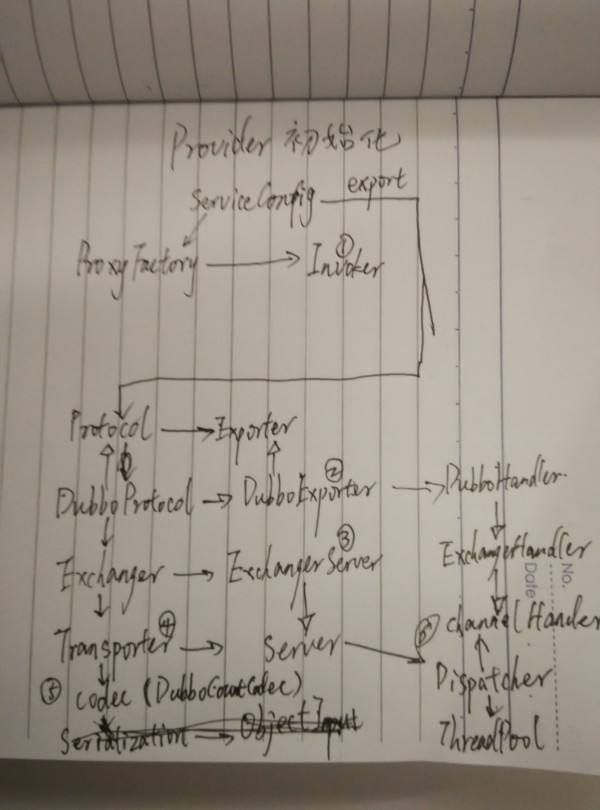 Provider 初始化
ServiceConfig export
ProxyFactory ① Invoker
Protocol Exporter
DubboProtocol ② DubboExporter DubboHandler
Exchanger ③ ExchangerServer ExchangeHandler
Transporter ④ Server ⑥ channelHandler
⑤ codec (DubboCountCodec) Dispatcher
Serialization ObjectInput ThreadPool
No.
Date